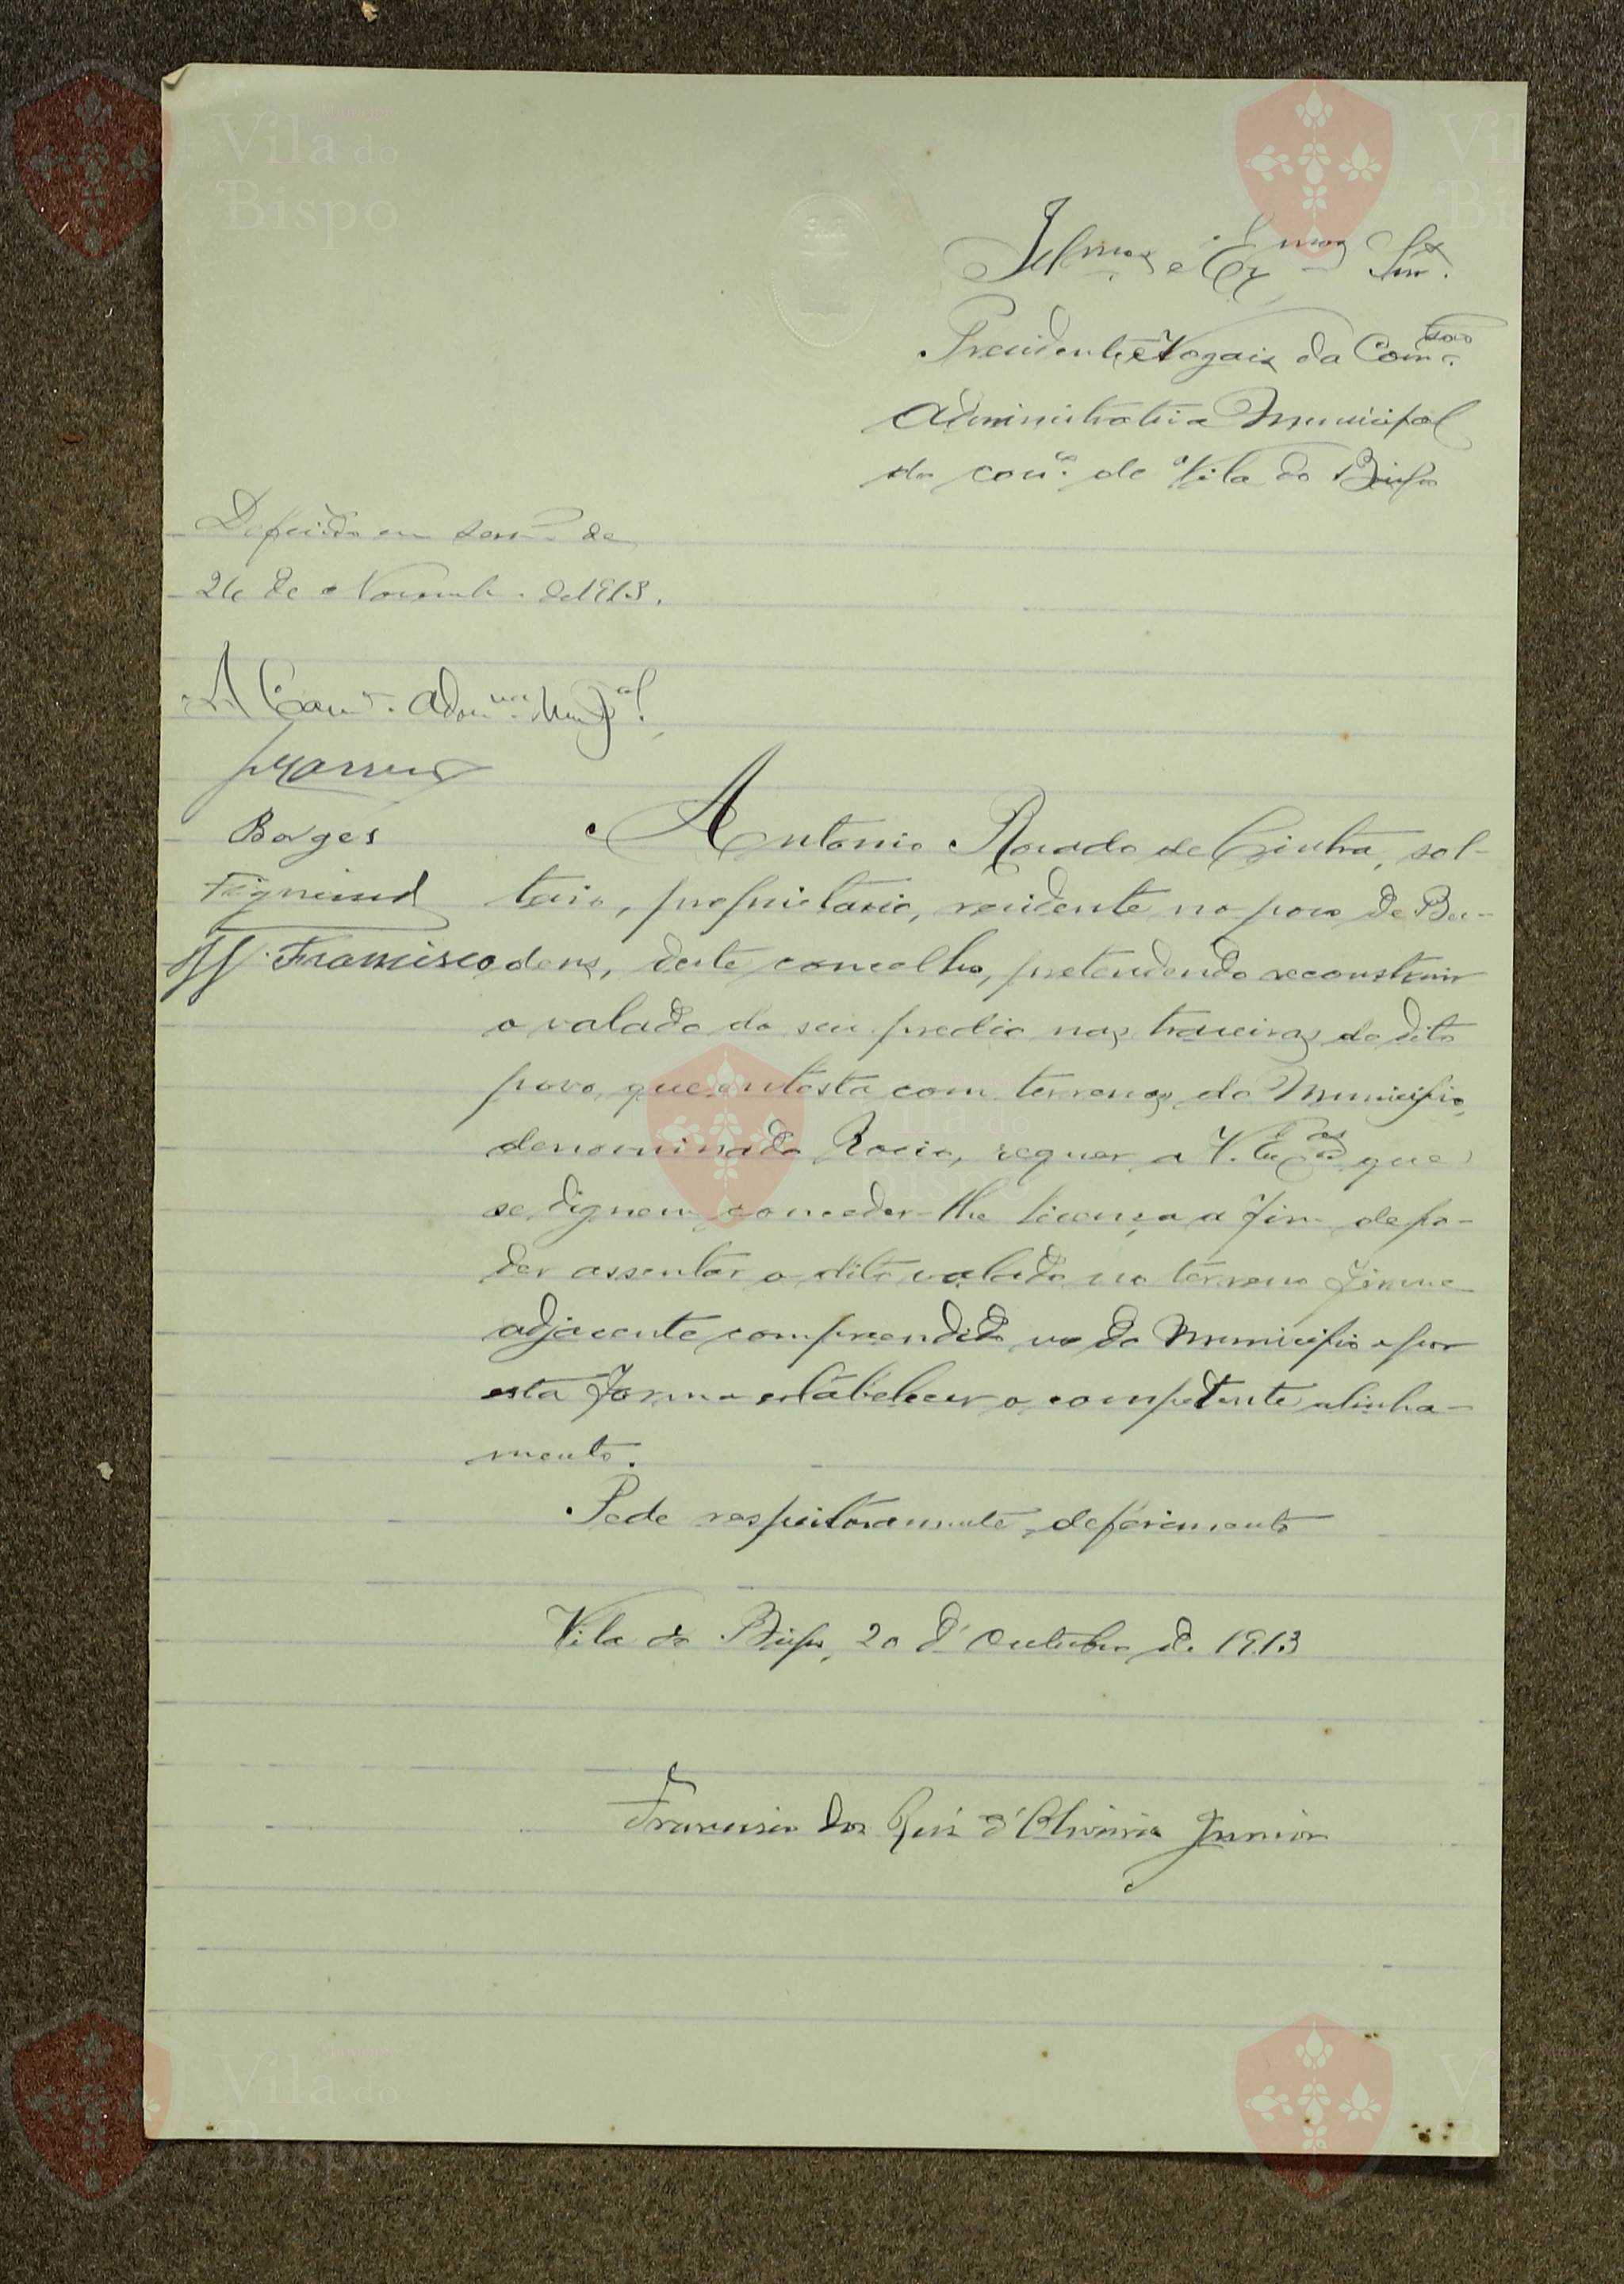 Illmos e Exmos Snrs.
Presidente e Vogais da Comssão
Administrativa Municipal
do conco. de Vila do Bispo
Deferido em sessão de
26 de Novembro de 1913.
A Com. Admva. Mupal.
Borges
Figueired
Francisco
Antonio Rosado de Cintra, sol-
teiro, proprietario, residente no povo de Bu-
dens, deste concelho, pretendendo reconstruir
o valado do seu predio nas traseiras do dito
povo, que entesta com terrenos do Municipio,
denominado Rocio, requer a V. Excias que
se dignem conceder-lhe licença a fim de po-
der assentar o dito valado no terreno firme
adjacente compreendido no do Municipio e por
esta forma estabelecer o competente alinha-
mento.
Pede respeitosamente deferimento
Vila do Bispo, 20 d'Outubro de 1913
Francisco dos Reis d'Oliveira Junior
Vila do
Bispo